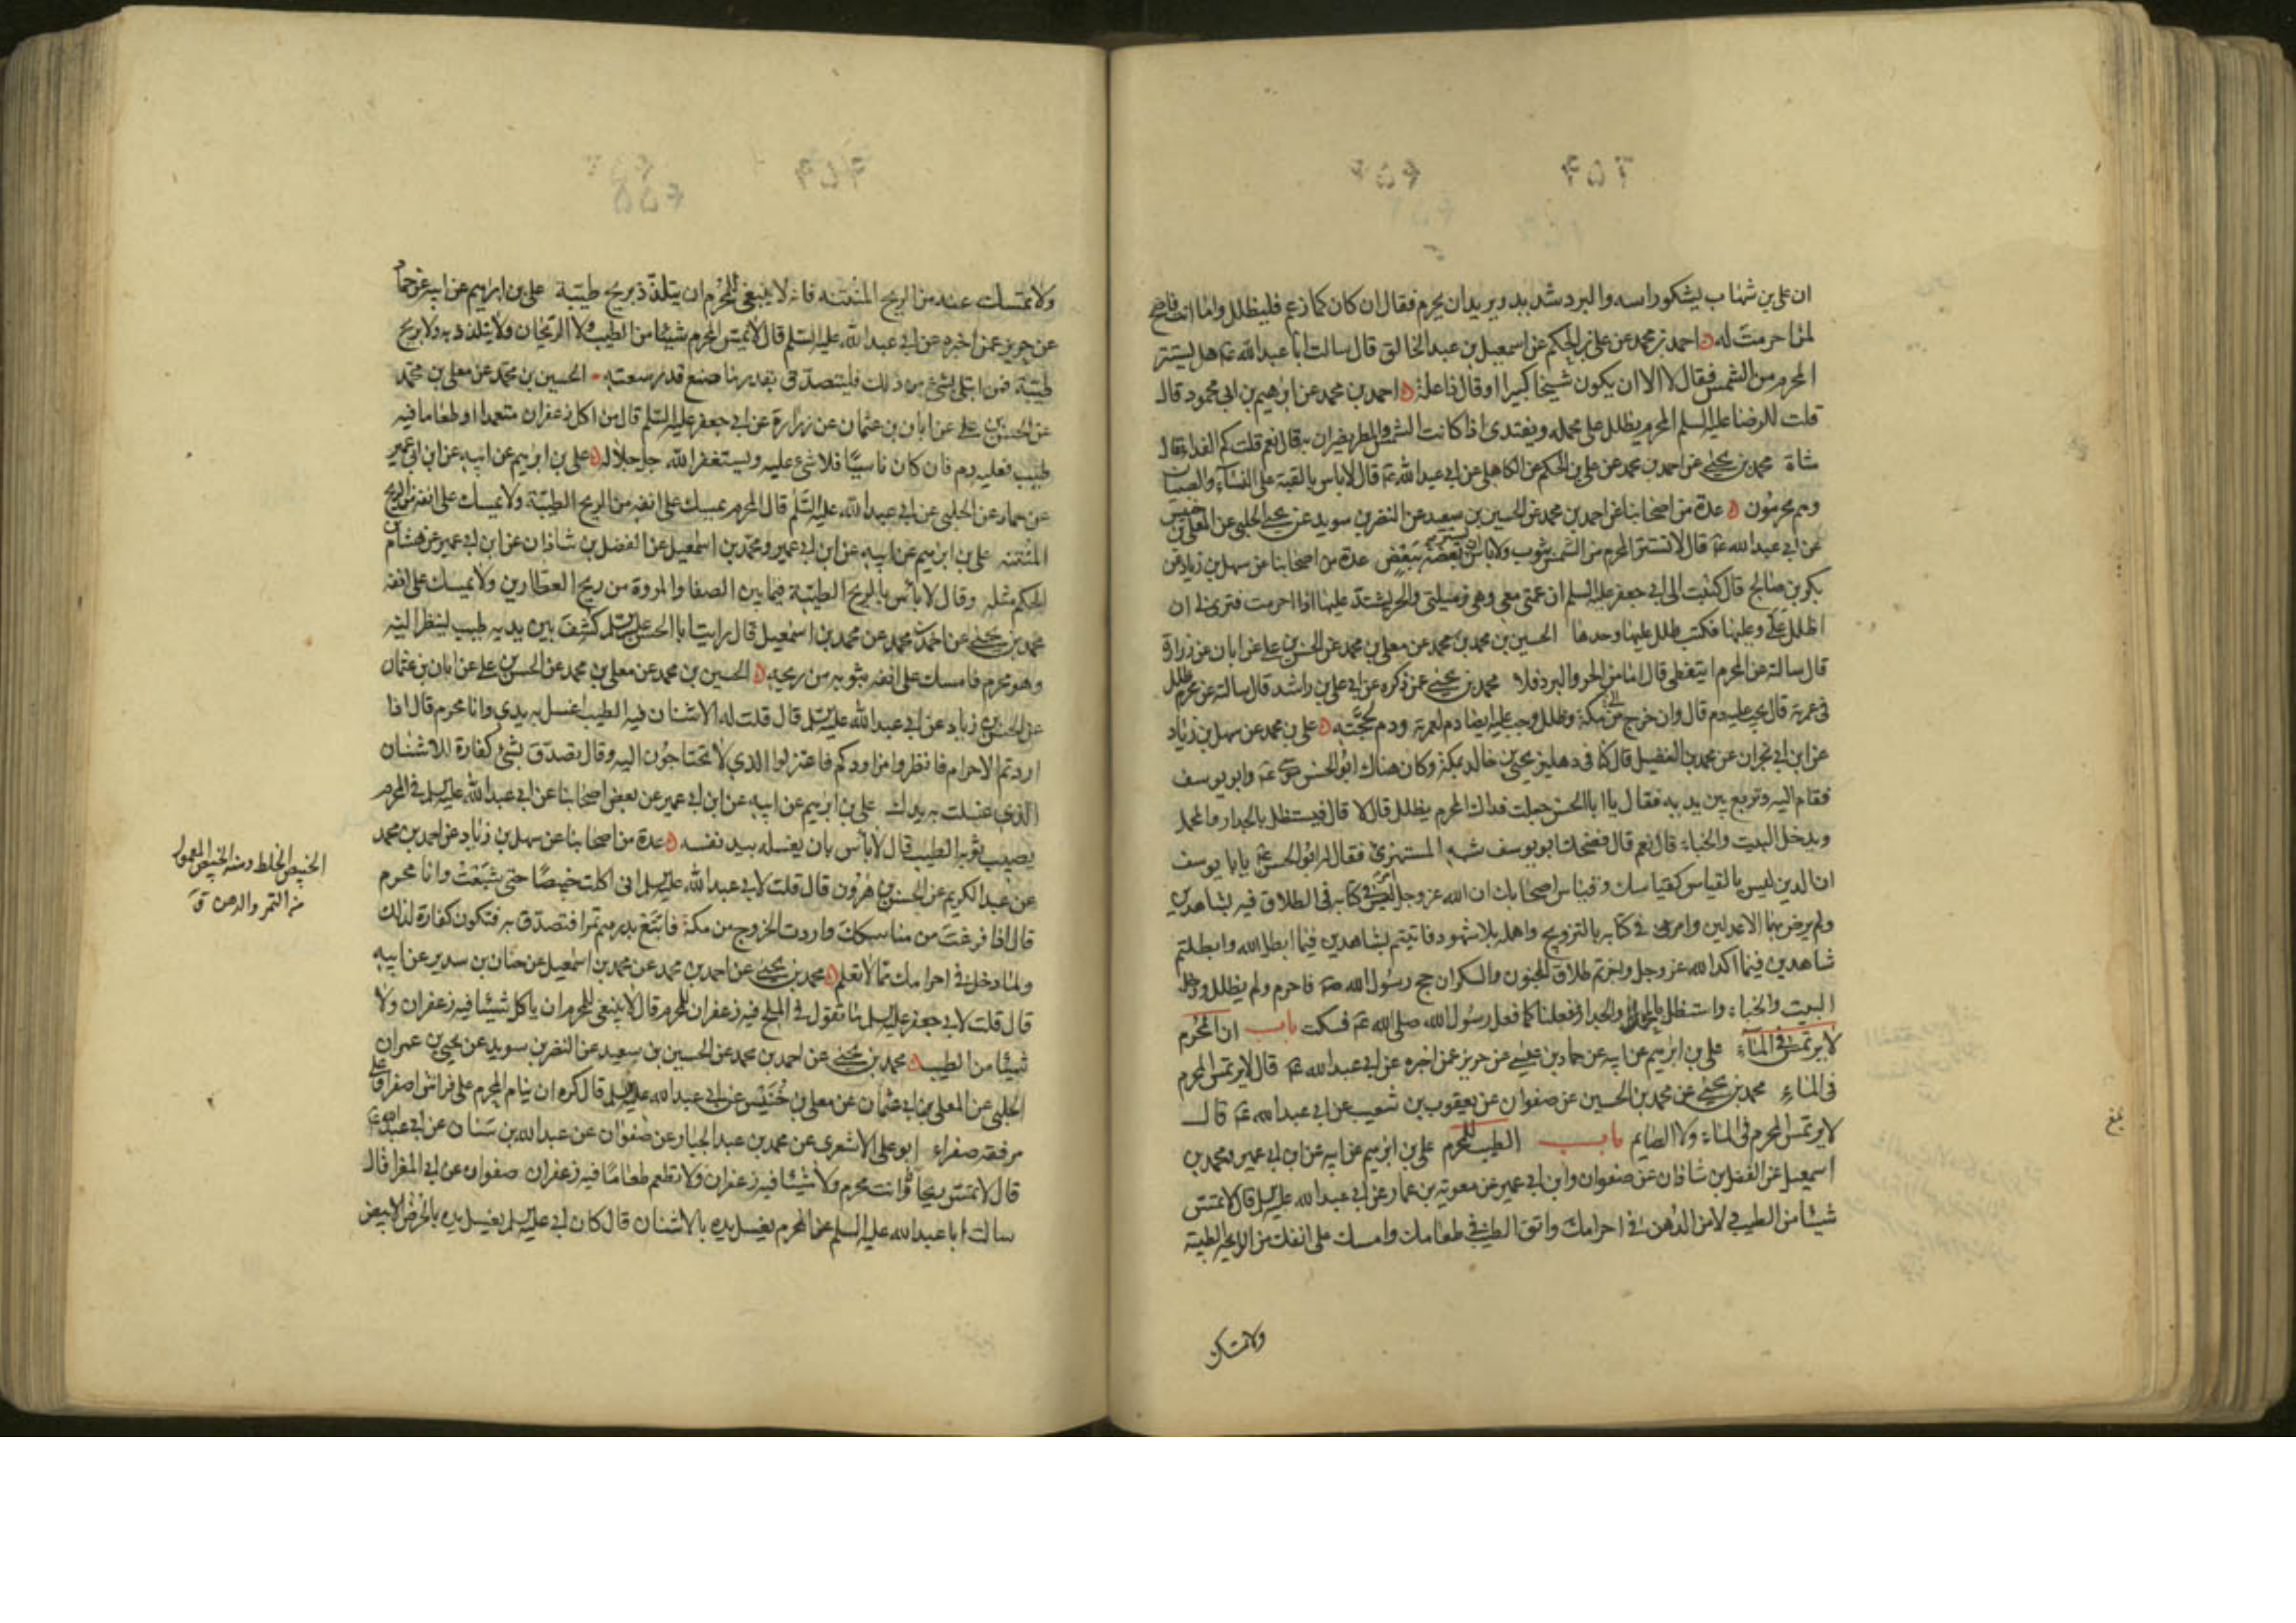 ان علي بن شهاب يشكو راسه والبرد شديد ويريد ان يحرم فقال ان كان كما زعم فليظلل واما انت فاضح
لمن احرمت له احمد بن محمد عن علي بن الحكم عن اسمعيل بن عبد الخالق قال سالت ابا عبد الله ع هل يستتر
المحرم من الشمس فقال لا الا ان يكون شيخا كبيرا او قال ذا علة احمد بن محمد عن ابرهيم بن ابي محمود قال
قلت للرضا عليه السلم المحرم يظلل على محمله ويفتدى اذا كانت الشمس والمطر يضران به قال نعم قلت كم الفداء قال
شاة محمد بن يحيى عن احمد بن محمد عن علي بن الحكم عن الكاهلي عن ابي عبد الله ع قال لاباس بالقبة على النساء والصبيان
وهم محرمون عدة من اصحابنا عن احمد بن محمد عن الحسين بن سعيد عن النضر بن سويد عن يحيى الحلبي عن المعلى بن خنيس
عن ابي عبد الله ع قال لا تستتر المحرم من الشمس بثوب ولاباس ان يستر بعضه ببعض عدة من اصحابنا عن سهل بن زياد عن
بكر بن صالح قال كتبت الى ابي جعفر عليه السلم ان عمتي معي وهي زميلتي والحر يشتد عليها اذا احرمت فترى لي ان
اظلل علي وعليها فكتب ظلل عليها وحدها الحسين بن محمد بن محمد عن معلى بن محمد عن الحسن بن علي عن ابان عن زرارة
قال سالته عن المحرم ايتغطى قال اما من الحر والبرد فلا محمد بن يحيى عمن ذكره عن ابي علي بن راشد قال سالته عن محرم ظلل
في عمرته قال يجب عليه دم قال وان خرج الى مكة وظلل وجب عليه ايضا دم لعمرته ودم لحجته علي بن محمد عن سهل بن زياد
عن ابن ابي نجران عن محمد بن الفضيل قال كنا في دهليز يحيى بن خالد بمكة وكان هناك ابو الحسن موسى ع وابو يوسف
فقام اليه وتربع بين يديه فقال يا ابا الحسن جعلت فداك المحرم يظلل قال لا قال فيستظل بالجدار والمحمل
ويدخل البيت والخباء قال نعم قال فضحك ابو يوسف شبه المستهزئ فقال له ابو الحسن ع يا با يوسف
ان الدين ليس بالقياس كقياسك وقياس اصحابك ان الله عز وجل امر في كتابه في الطلاق فيه بشاهدين
ولم يرض بهما الا عدلين وامر في كتابه بالتزويج واهله بلا شهود فاتيتم بشاهدين فيما ابطل الله وابطلتم
شاهدين فيما اكد الله عز وجل واجزتم طلاق المجنون والسكران حج رسول الله ص فاحرم ولم يظلل ودخل
البيت والخباء واستظل بالمحمل والجدار ففعلنا كما فعل رسول الله صلى الله ع فسكت باب ان المحرم
لا يرتمس في الماء علي بن ابرهيم عن ابيه عن حماد بن عيسى عن حريز عمن اخبره عن ابي عبد الله ع قال لا يرتمس المحرم
في الماء محمد بن يحيى عن محمد بن الحسين عن صفوان عن يعقوب بن شعيب عن ابي عبد الله ع قال
لا يرتمس المحرم في الماء ولا الصايم باب الطيب للمحرم علي بن ابرهيم عن ابيه عن ابن ابي عمير ومحمد بن
اسمعيل عن الفضل بن شاذان عن صفوان وابن ابي عمير عن معوية بن عمار عن ابي عبد الله عليه السلم قال لا تمتس
شيئا من الطيب ولا من الدهن في احرامك واتق الطيب في طعامك وامسك على انفك من الرايحة الطيبة
ولا تمسك
بلغ
ولا تمسك عنه من الريح المنتنة فانه لا ينبغي للمحرم ان يتلذذ بريح طيبة علي بن ابرهيم عن ابيه عن حماد
عن حريز عمن اخبره عن ابي عبد الله عليه السلم قال لا يمس المحرم شيئا من الطيب ولا الريحان ولا يتلذذ به ولا بريح
طيبة فمن ابتلى بشئ من ذلك فليتصدق بقدر ما صنع قدر سعته الحسين بن محمد عن معلى بن محمد
عن الحسن بن علي عن ابان بن عثمان عن زرارة عن ابي جعفر عليه السلم قال من اكل زعفران متعمدا او طعاما فيه
طيب فعليه دم فان كان ناسيا فلا شئ عليه ويستغفر الله جل جلاله علي بن ابرهيم عن ابيه عن ابن ابي عمير
عن حماد عن الحلبي عن ابي عبد الله عليه السلم قال المحرم يمسك على انفه من الريح الطيبة ولا يمسك على انفه من الريح
المنتنة علي بن ابرهيم عن ابيه عن ابن ابي عمير ومحمد بن اسمعيل عن الفضل بن شاذان عن ابن ابي عمير عن هشام بن
الحكم مثله وقال لا باس بالريح الطيبة فيما بين الصفا والمروة من ريح العطارين ولا يمسك على انفه
محمد بن يحيى عن احمد بن محمد عن محمد بن اسمعيل قال رايت ابا الحسن عليه السلم كشف بين يديه طيب لينظر اليه
وهو محرم فامسك على انفه بثوبه من ريحه الحسين بن محمد عن معلى بن محمد عن الحسن بن علي عن ابان بن عثمان
عن الحسن بن زياد عن ابي عبد الله عليه السلم قال قلت له الاشنان فيه الطيب اغسل به يدي وانا محرم قال اذا
اردتم الاحرام فانظروا مزاودكم فاعزلوا الذي لا تحتاجون اليه وقال تصدق بشئ كفارة للاشنان
الذي غسلت به يدك علي بن ابرهيم عن ابيه عن ابن ابي عمير عن بعض اصحابنا عن ابي عبد الله عليه السلم في المحرم
يصيب ثوبه الطيب قال لا باس بان يغسله بيد نفسه عدة من اصحابنا عن سهل بن زياد عن احمد بن محمد
عن عبد الكريم عن الحسن بن هرون قال قلت لابي عبد الله عليه السلم اني اكلت خبيصا حتى شبعت وانا محرم
قال اذا فرغت من مناسكك واردت الخروج من مكة فابتع بدرهم تمرا فتصدق به فتكون كفارة لذلك
ولما دخل في احرامك مما لا تعلم محمد بن يحيى عن احمد بن محمد عن محمد بن اسمعيل عن حنان بن سدير عن ابيه
قال قلت لابي جعفر عليه السلم ما تقول في الملح فيه زعفران للمحرم قال لا ينبغي للمحرم ان ياكل شيئا فيه زعفران ولا
شيئا من الطيب محمد بن يحيى عن احمد بن محمد عن الحسين بن سعيد عن النضر بن سويد عن يحيى بن عمران
الحلبي عن المعلى بن ابي عثمان عن معلى بن خنيس عن ابي عبد الله عليه السلم قال كره ان ينام المحرم على فراش اصفر او على
مرفقة صفراء ابو علي الاشعري عن محمد بن عبد الجبار عن صفوان عن عبد الله بن سنان عن ابي عبد الله ع
قال لا تمس ريحانا وانت محرم ولا شيئا فيه زعفران ولا تطعم طعاما فيه زعفران صفوان عن ابي المغرا قال
سالت ابا عبد الله عليه السلم عن المحرم يغسل يده بالاشنان قال كان ابي عليه السلم يغسل يده بالحرض الابيض
الخبيص الخلط ومنه الخبيص المعمول
من التمر والدهن ق